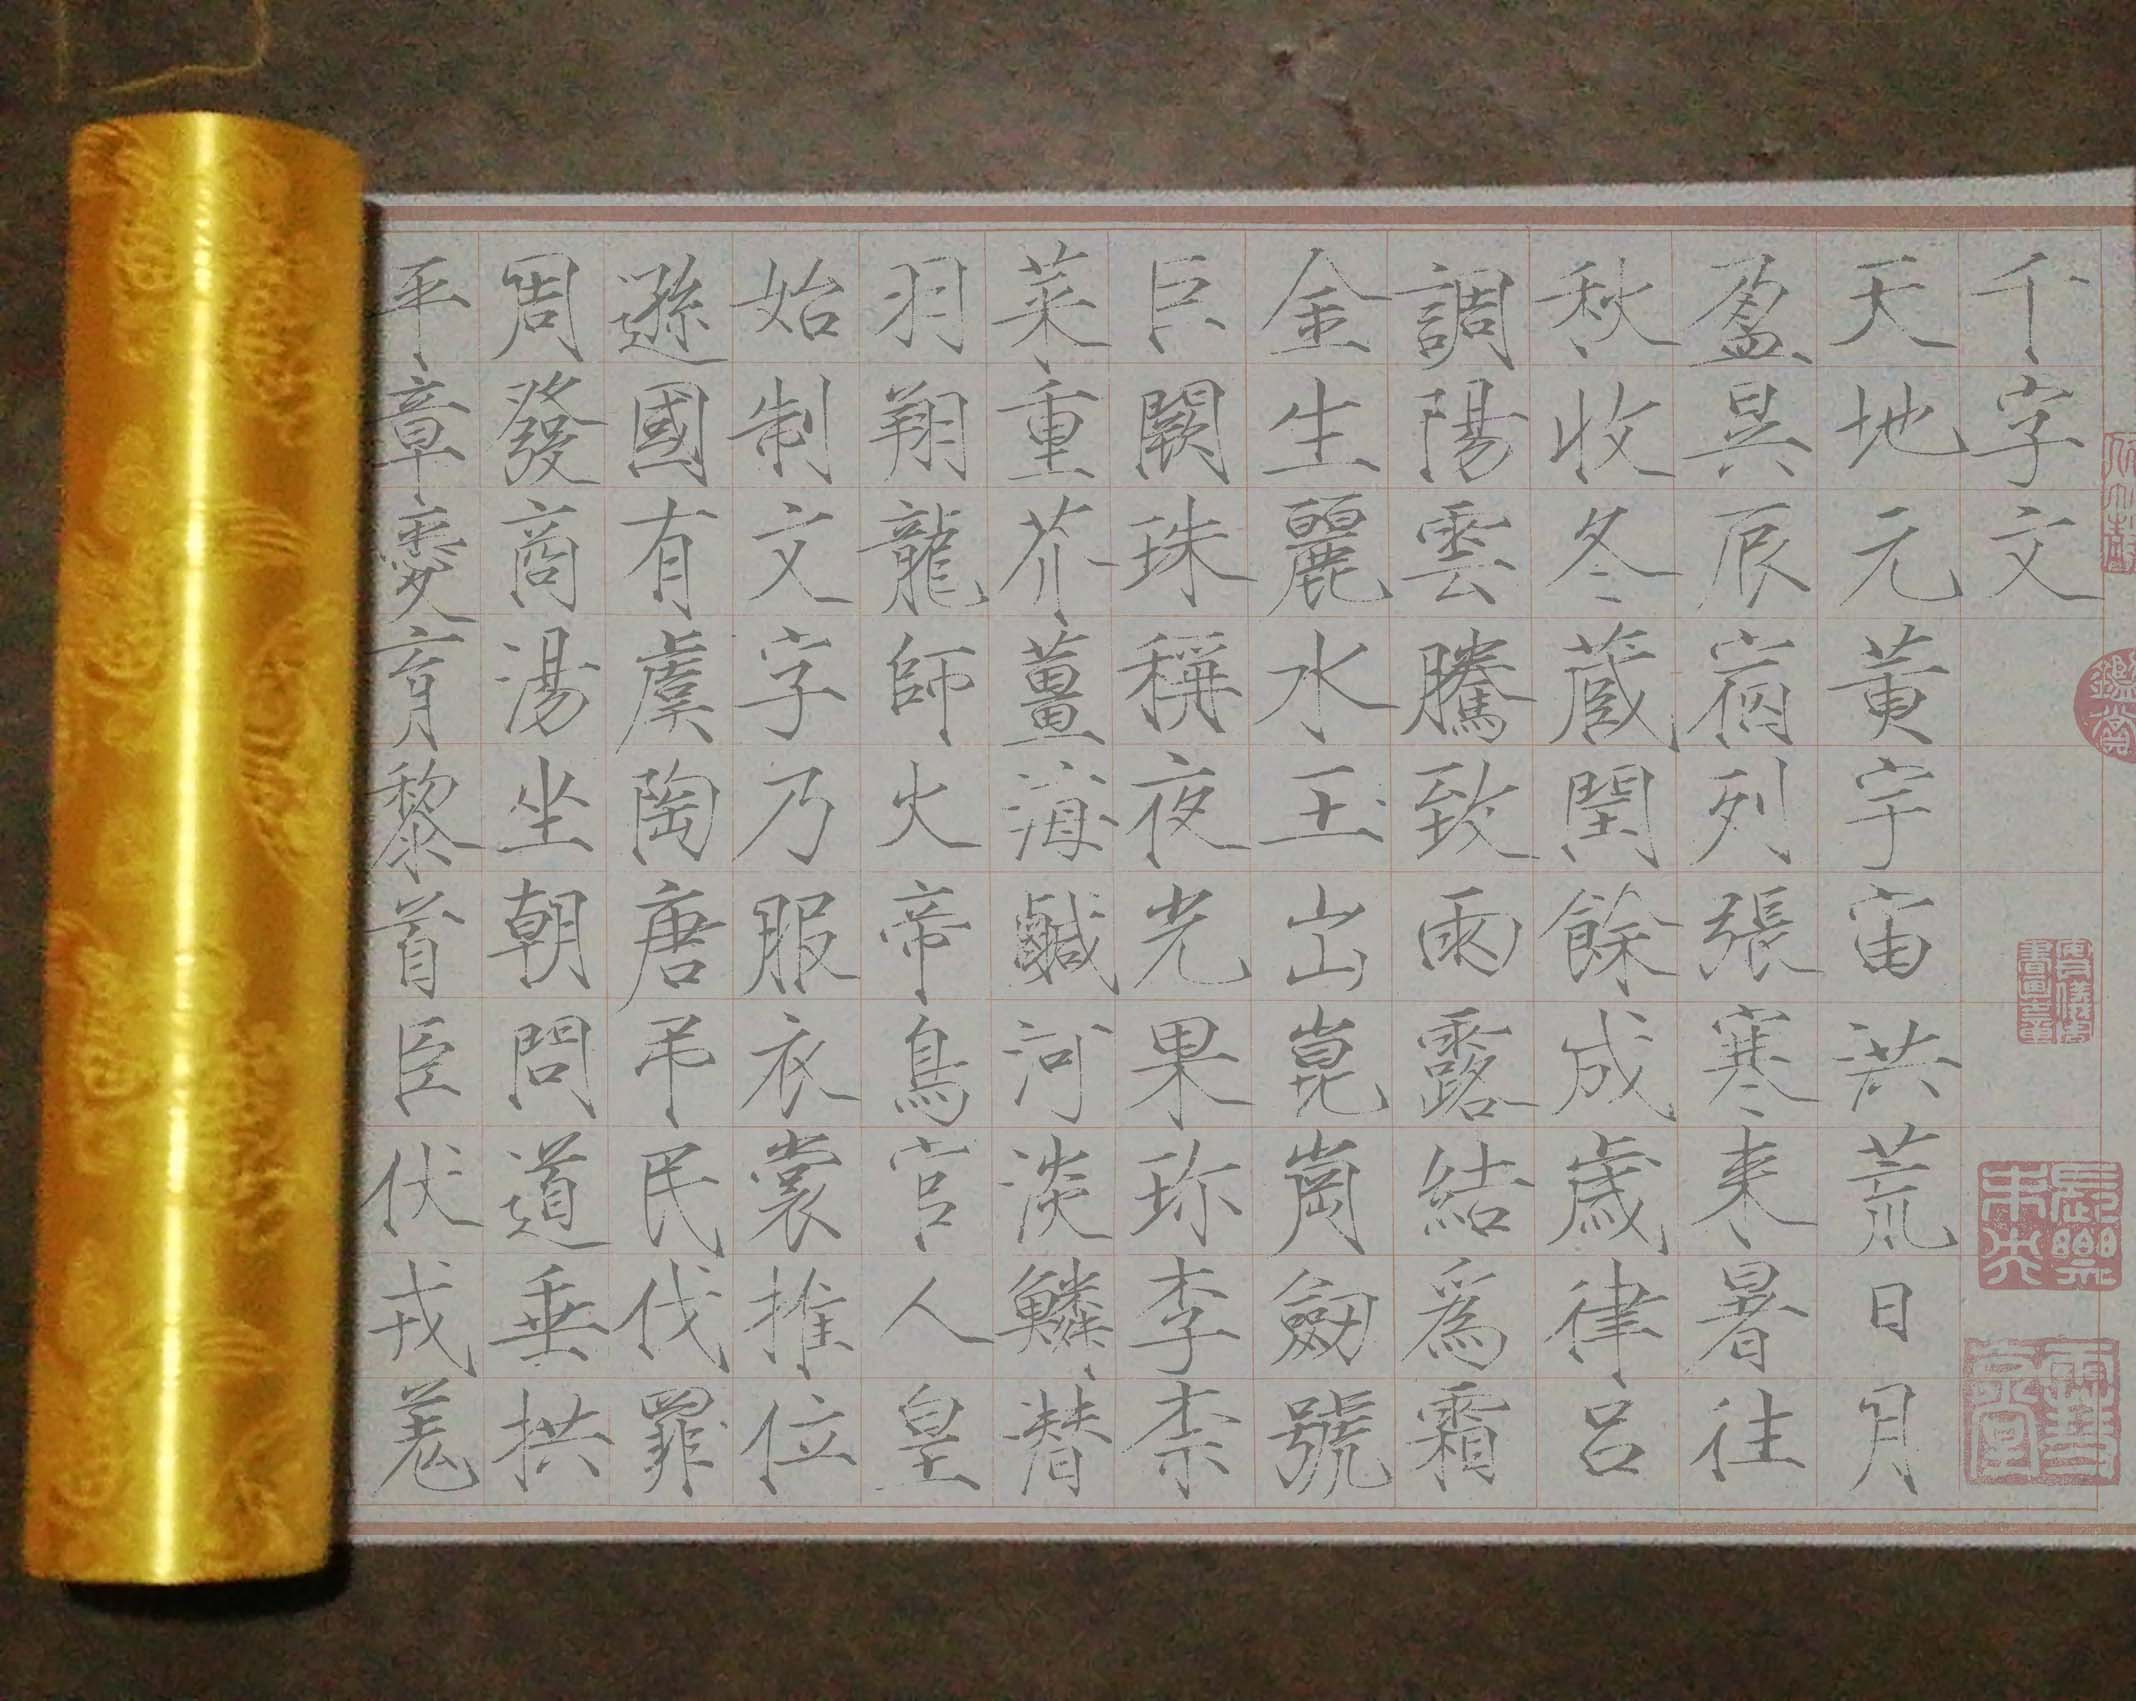 千字文
天地元黃宇宙洪荒日月
盈昃辰宿列張寒来暑往
秋收冬蔵閏餘成歳律呂
調陽雲騰致雨露結爲霜
金生麗水玉出崑崗劔號
巨闕珠稱夜光果珎李柰
菜重芥薑海鹹河淡鱗潜
羽翔龍師火帝鳥官人皇
始制文字乃服衣裳推位
遜國有虞陶唐弔民伐罪
周發商湯坐朝問道垂拱
平章愛育黎首臣伏戎羌